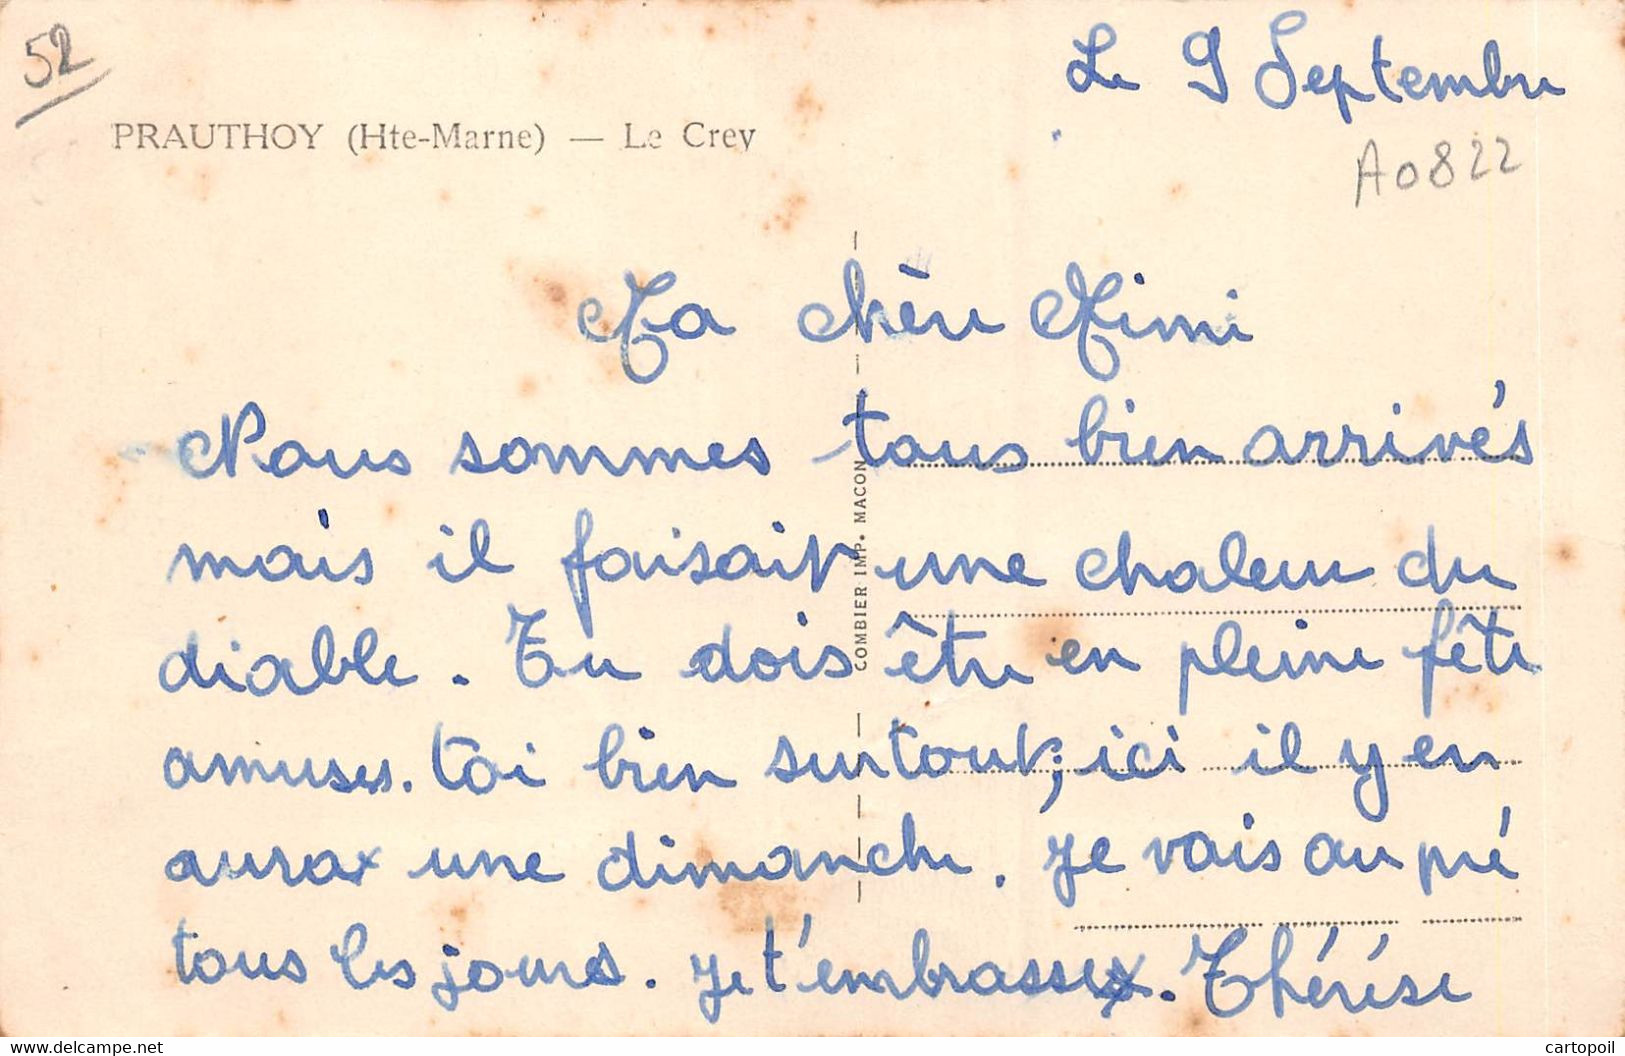 52
Le 9 Septembre
PRAUTHOY (Hte-Marne) — Le Crey
A0822
Ma chère Mimi
Nous sommes tous bien arrivés
mais il faisait une chaleur du
diable. Tu dois être en pleine fête
amuses. toi bien surtout, ici il y en
aura une dimanche. Je vais au pré
tous les jours. Je t'embrasse. Thérèse
COMBIER IMP. MACON
www.delcampe.net
cartopoil